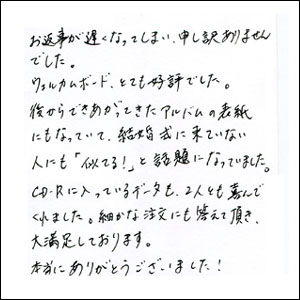 お返事が遅くなってしまい、申し訳ありません
でした。
ウェルカムボード、とても好評でした。
後からできあがってきたアルバムの表紙
にもなっていて、結婚式に来ていない
人にも「似てる!」と話題になっていました。
CD-Rに入っているデータも、2人とも喜んで
くれました。細かな注文にも答えて頂き、
大満足しております。
本当にありがとうございました!